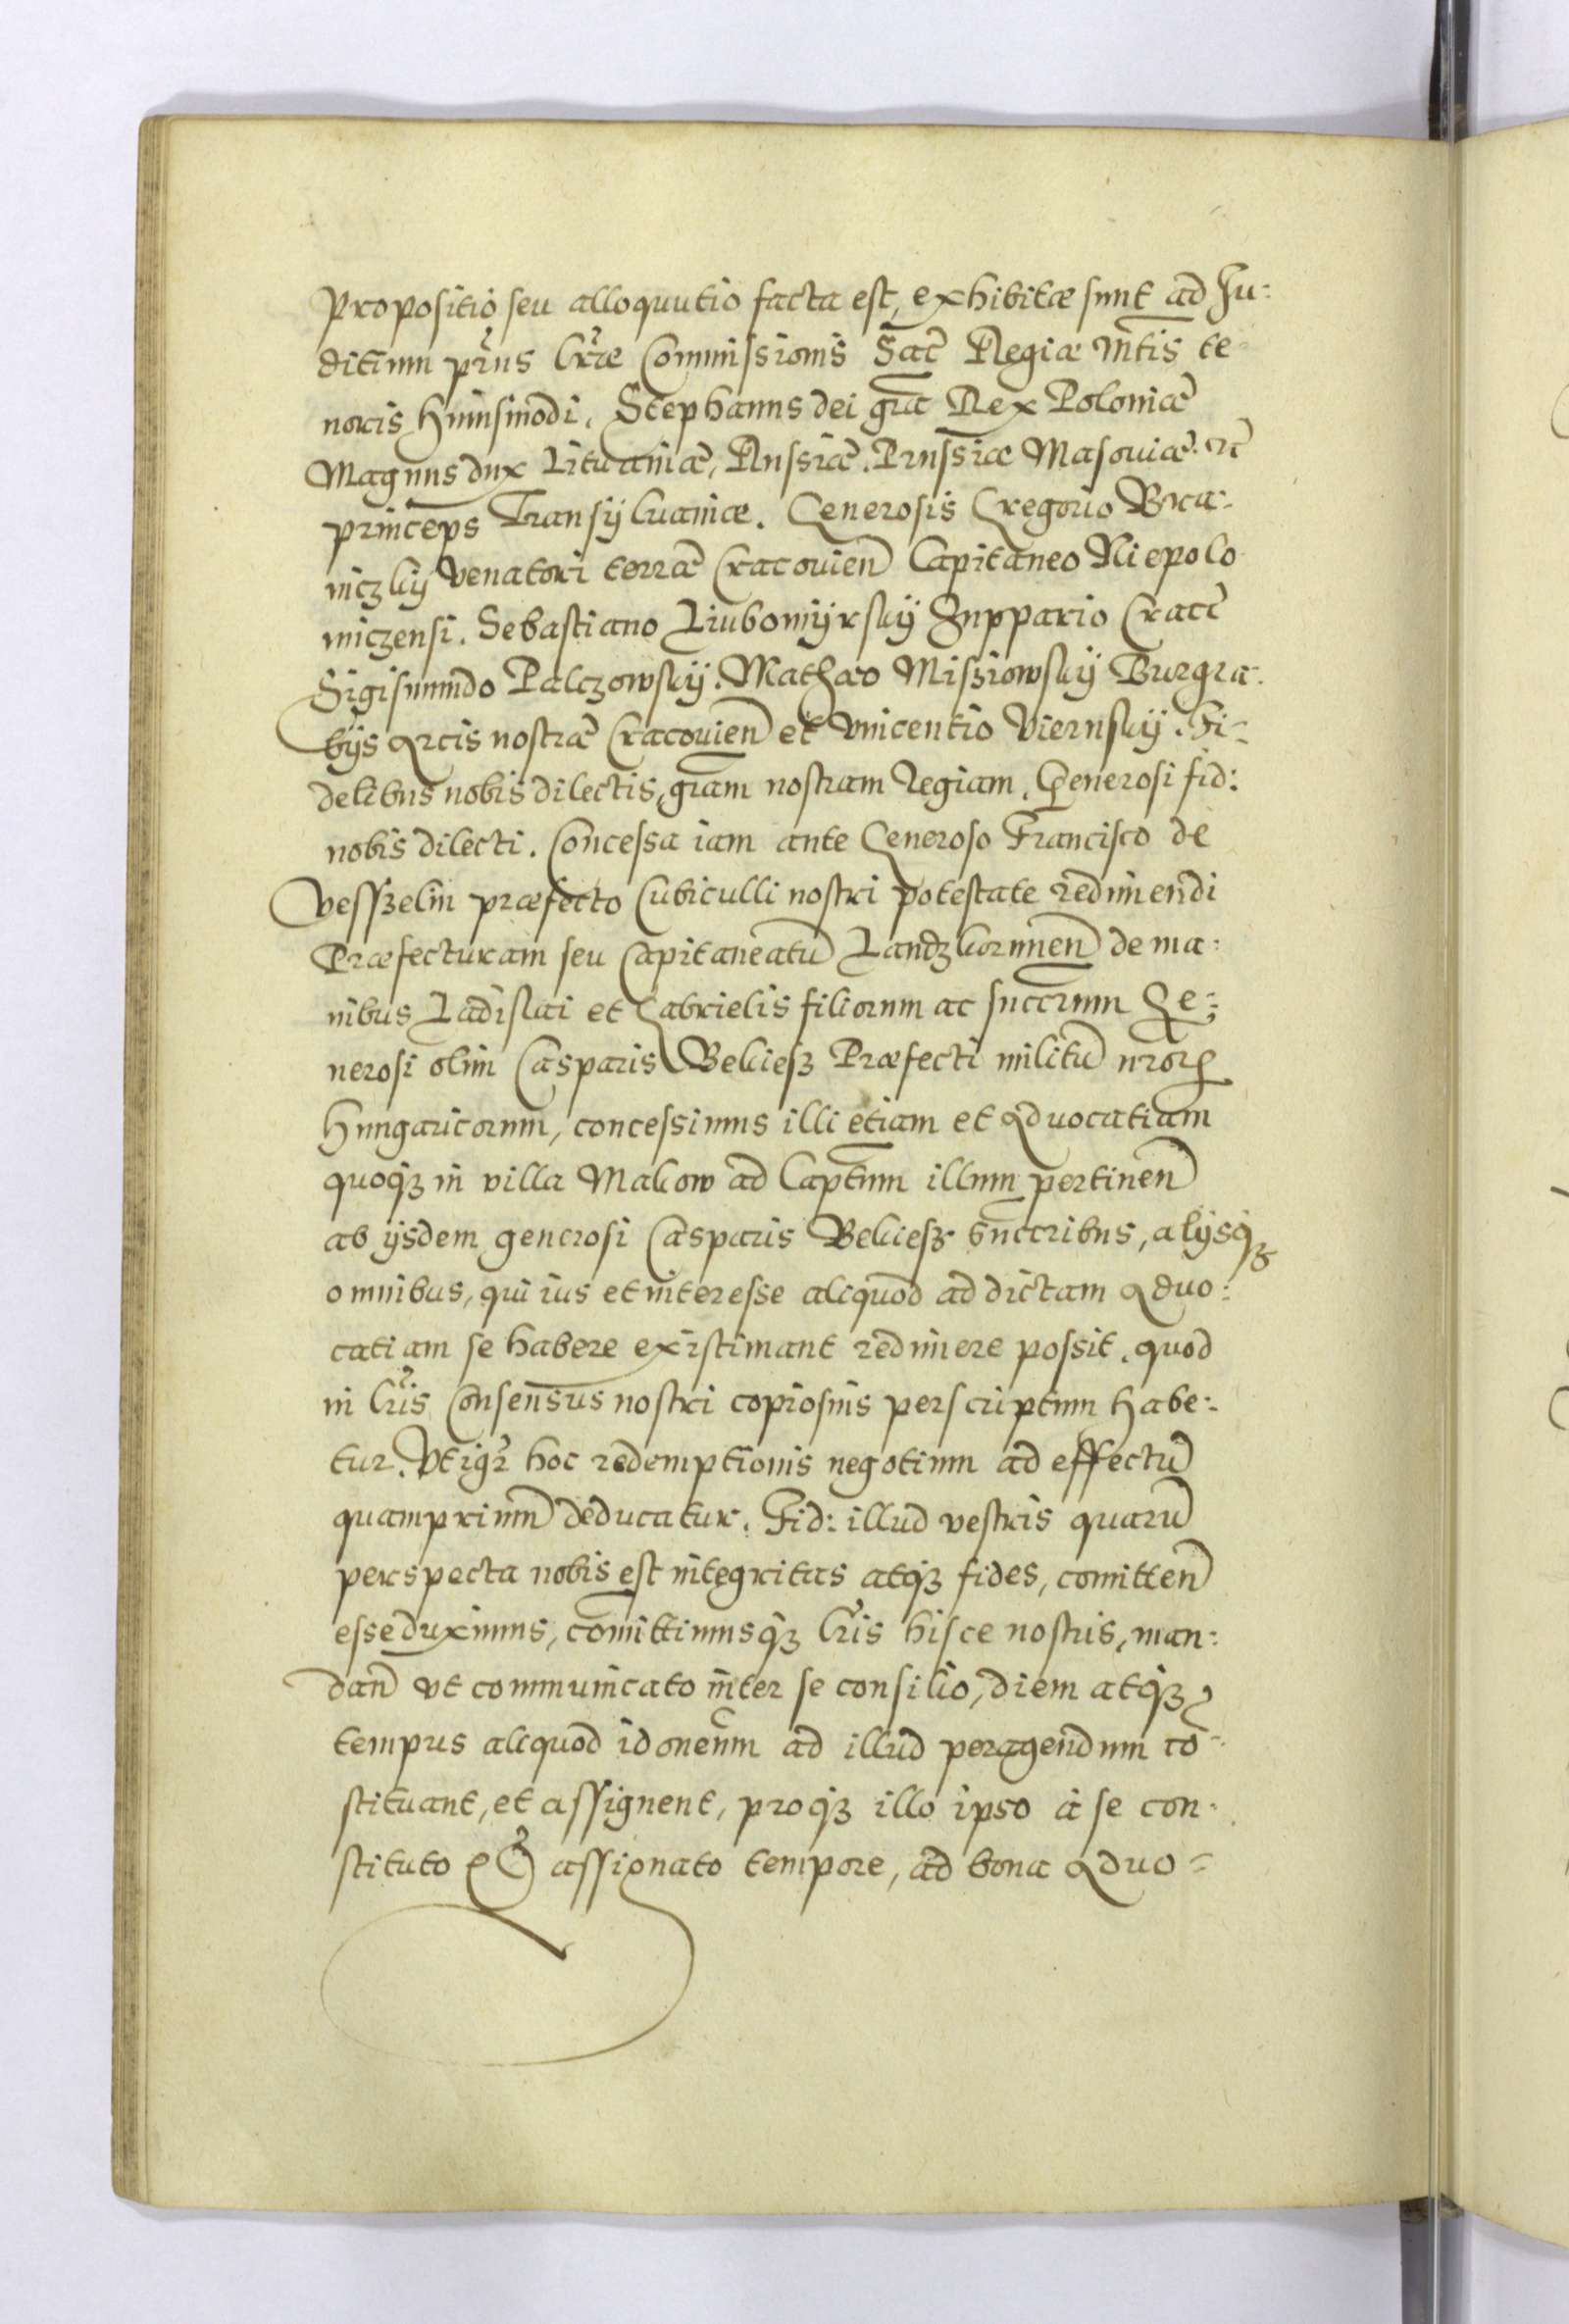 Propositio seu alloquutio facta est, exhibitæ sunt ad Iu:
ditium pri͂us Lr͂æ Commissionis Sac͂ Regiæ Mt͂is te-
noris huiusmodi. Stephanus dei gra͂ Rex Poloniæ
Magnus dux Lituaniæ, Russiæ. Prussiæ Masouiæ. ec͂
princeps Transÿluaniæ. Generosis Gregorio Bra-
niczkÿ Venatori terræ Cracouien͂ Capitaneo Niepolo
miczensi. Sebastiano Liubomÿrskÿ Zuppario Crac͂
Sigismundo Palczowskÿ. Mathæo Missiowskÿ Burgra-
bÿs Arcis nostræ Cracouien͂ et Vincentio Viernskÿ. Fi-
delibus nobis dilectis, gram͂ nostram Regiam. Generosi fid:
nobis dilecti. Concessa iam ante Generoso Francisco de
Vesszelin præfecto Cubiculli nostri potestate redimendi
Præfecturam seu Capitaneatu͂ Landzkorunen͂ de ma:
nibus Ladislai et Gabrielis filiorum ac succrum Ge:
nerosi olim Casparis Bekiesz Præfecti militu͂ nr͂orꝝ
Hungaricorum, concessimus illi etiam et Aduocatiam
quoqꝫ in villa Makow ad Captum illum pertinen͂
ab ÿsdem generosi Casparis Bekiesz succribus, alÿsqꝫ
omnibus, qui ius et interesse aliquod ad dictam Aduo:
catiam se habere existimant redimere possit. quod
in Lr͂is Consensus nostri copiosius perscriptum habe:
tur. Vt igr͂ hoc redemptionis negotium ad effectu͂
quamprimu͂ deducatur. Fid: illud vestris quaru͂
perspecta nobis est integritas atqꝫ fides, comitten͂
esse duximus, comittimusqꝫ Lr͂is hisce nostris, man:
dan͂ vt communicato inter se consilio, diem atqꝫ
tempus aliquod idoneum ad illud peragendum co͂-
stituant, et assignent, proqꝫ illo ipso à se con-
stituto et assignato tempore, ad bona Aduo-